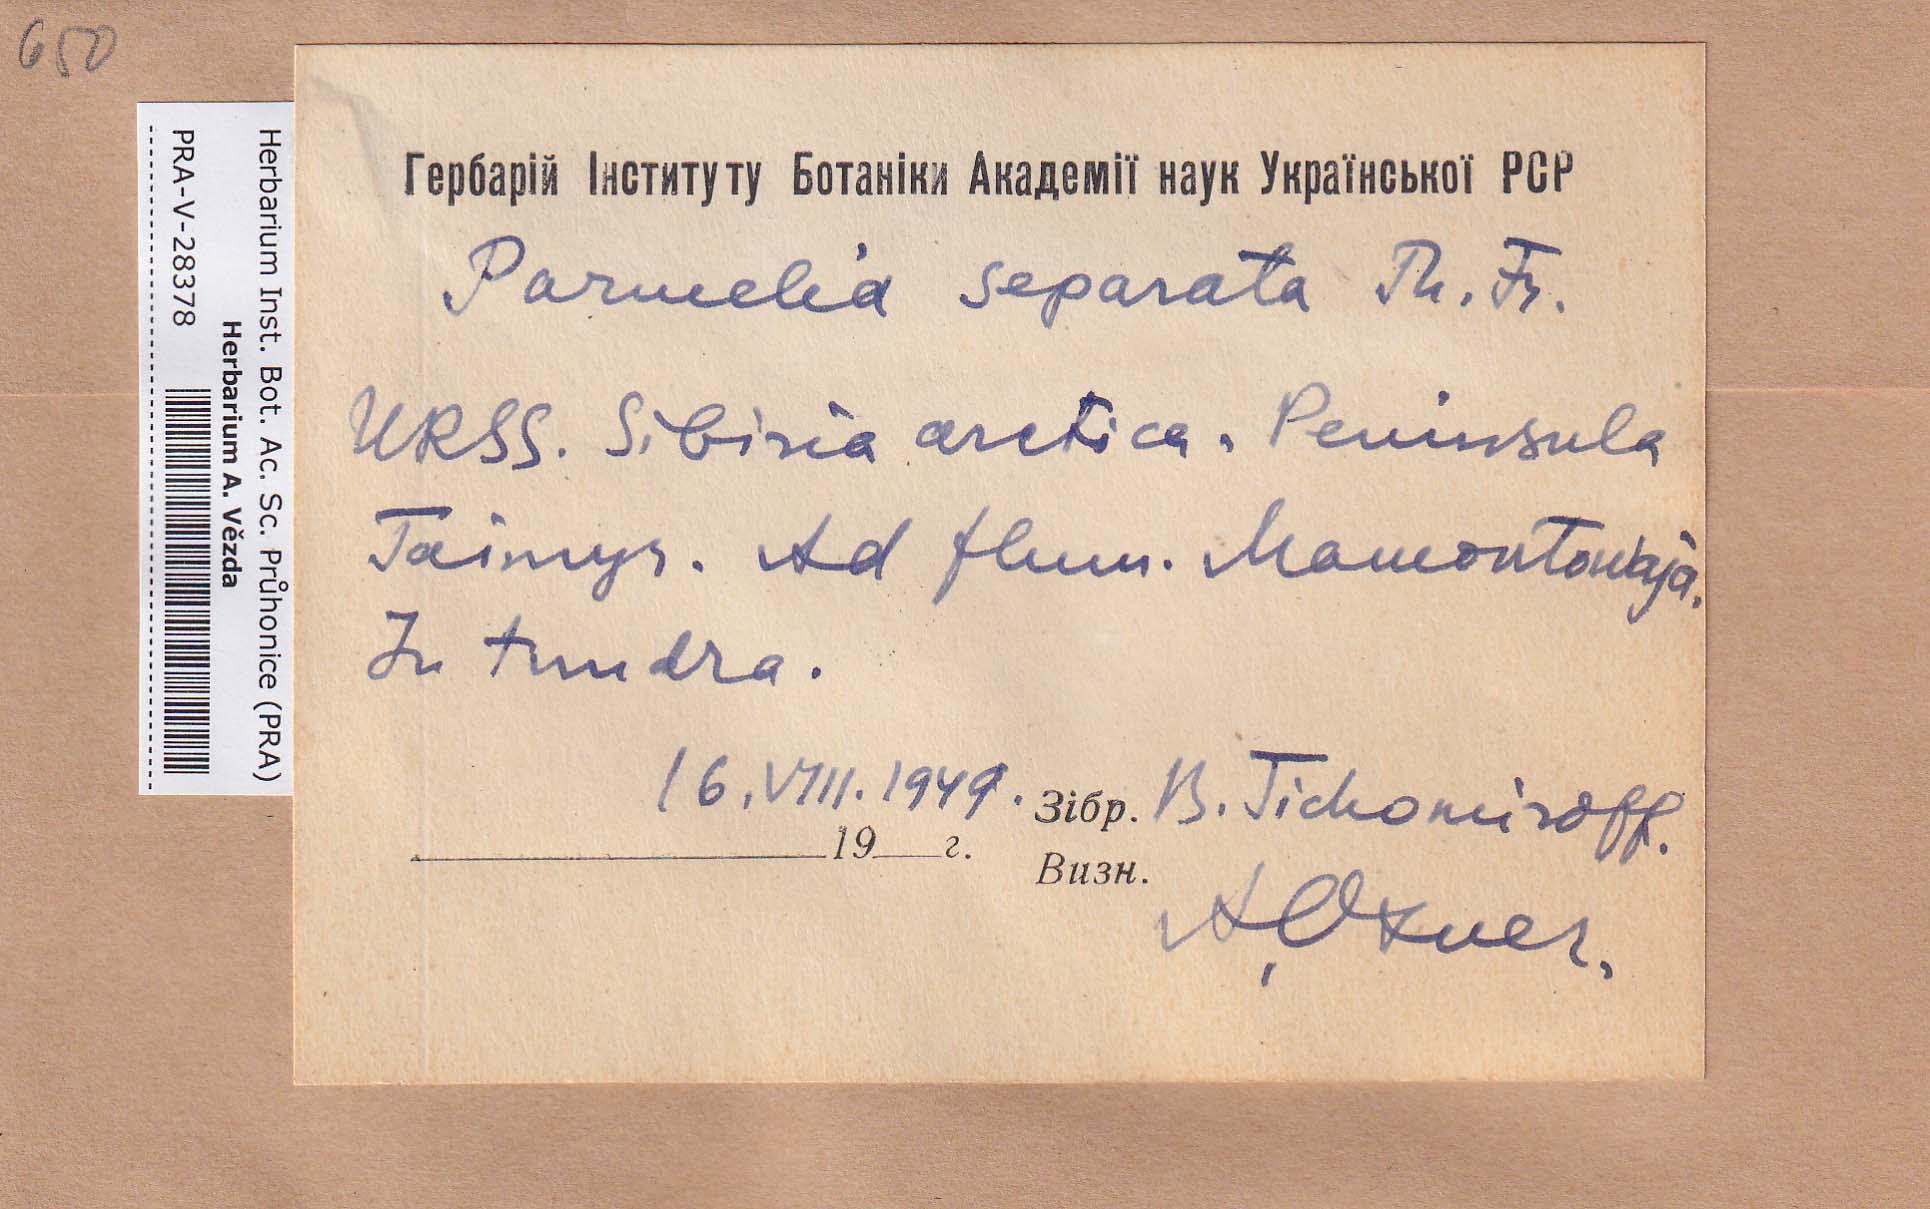 650
Herbarium Inst. Bot. Ac. Sc. Průhonice (PRA)
Herbarium A. Vězda
PRA-V-28378
Гербарій Інституту Ботаніки Академії наук Української РСР
Parmelia separata Th. Fr.
URSS. Sibiria arctica. Peninsula
Taimyr. Ad flum. Mamontowaja.
In tundra.
16.VIII.1949. Зібр. B. Tichomiroff.
19 г.
Визн.
A. Oxner.